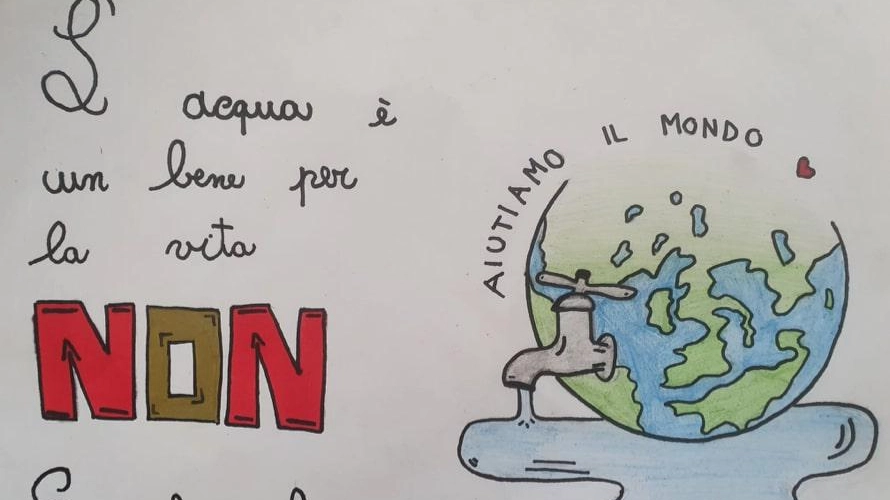 L'acqua è
un bene per
la vita
NON
AIUTIAMO IL MONDO